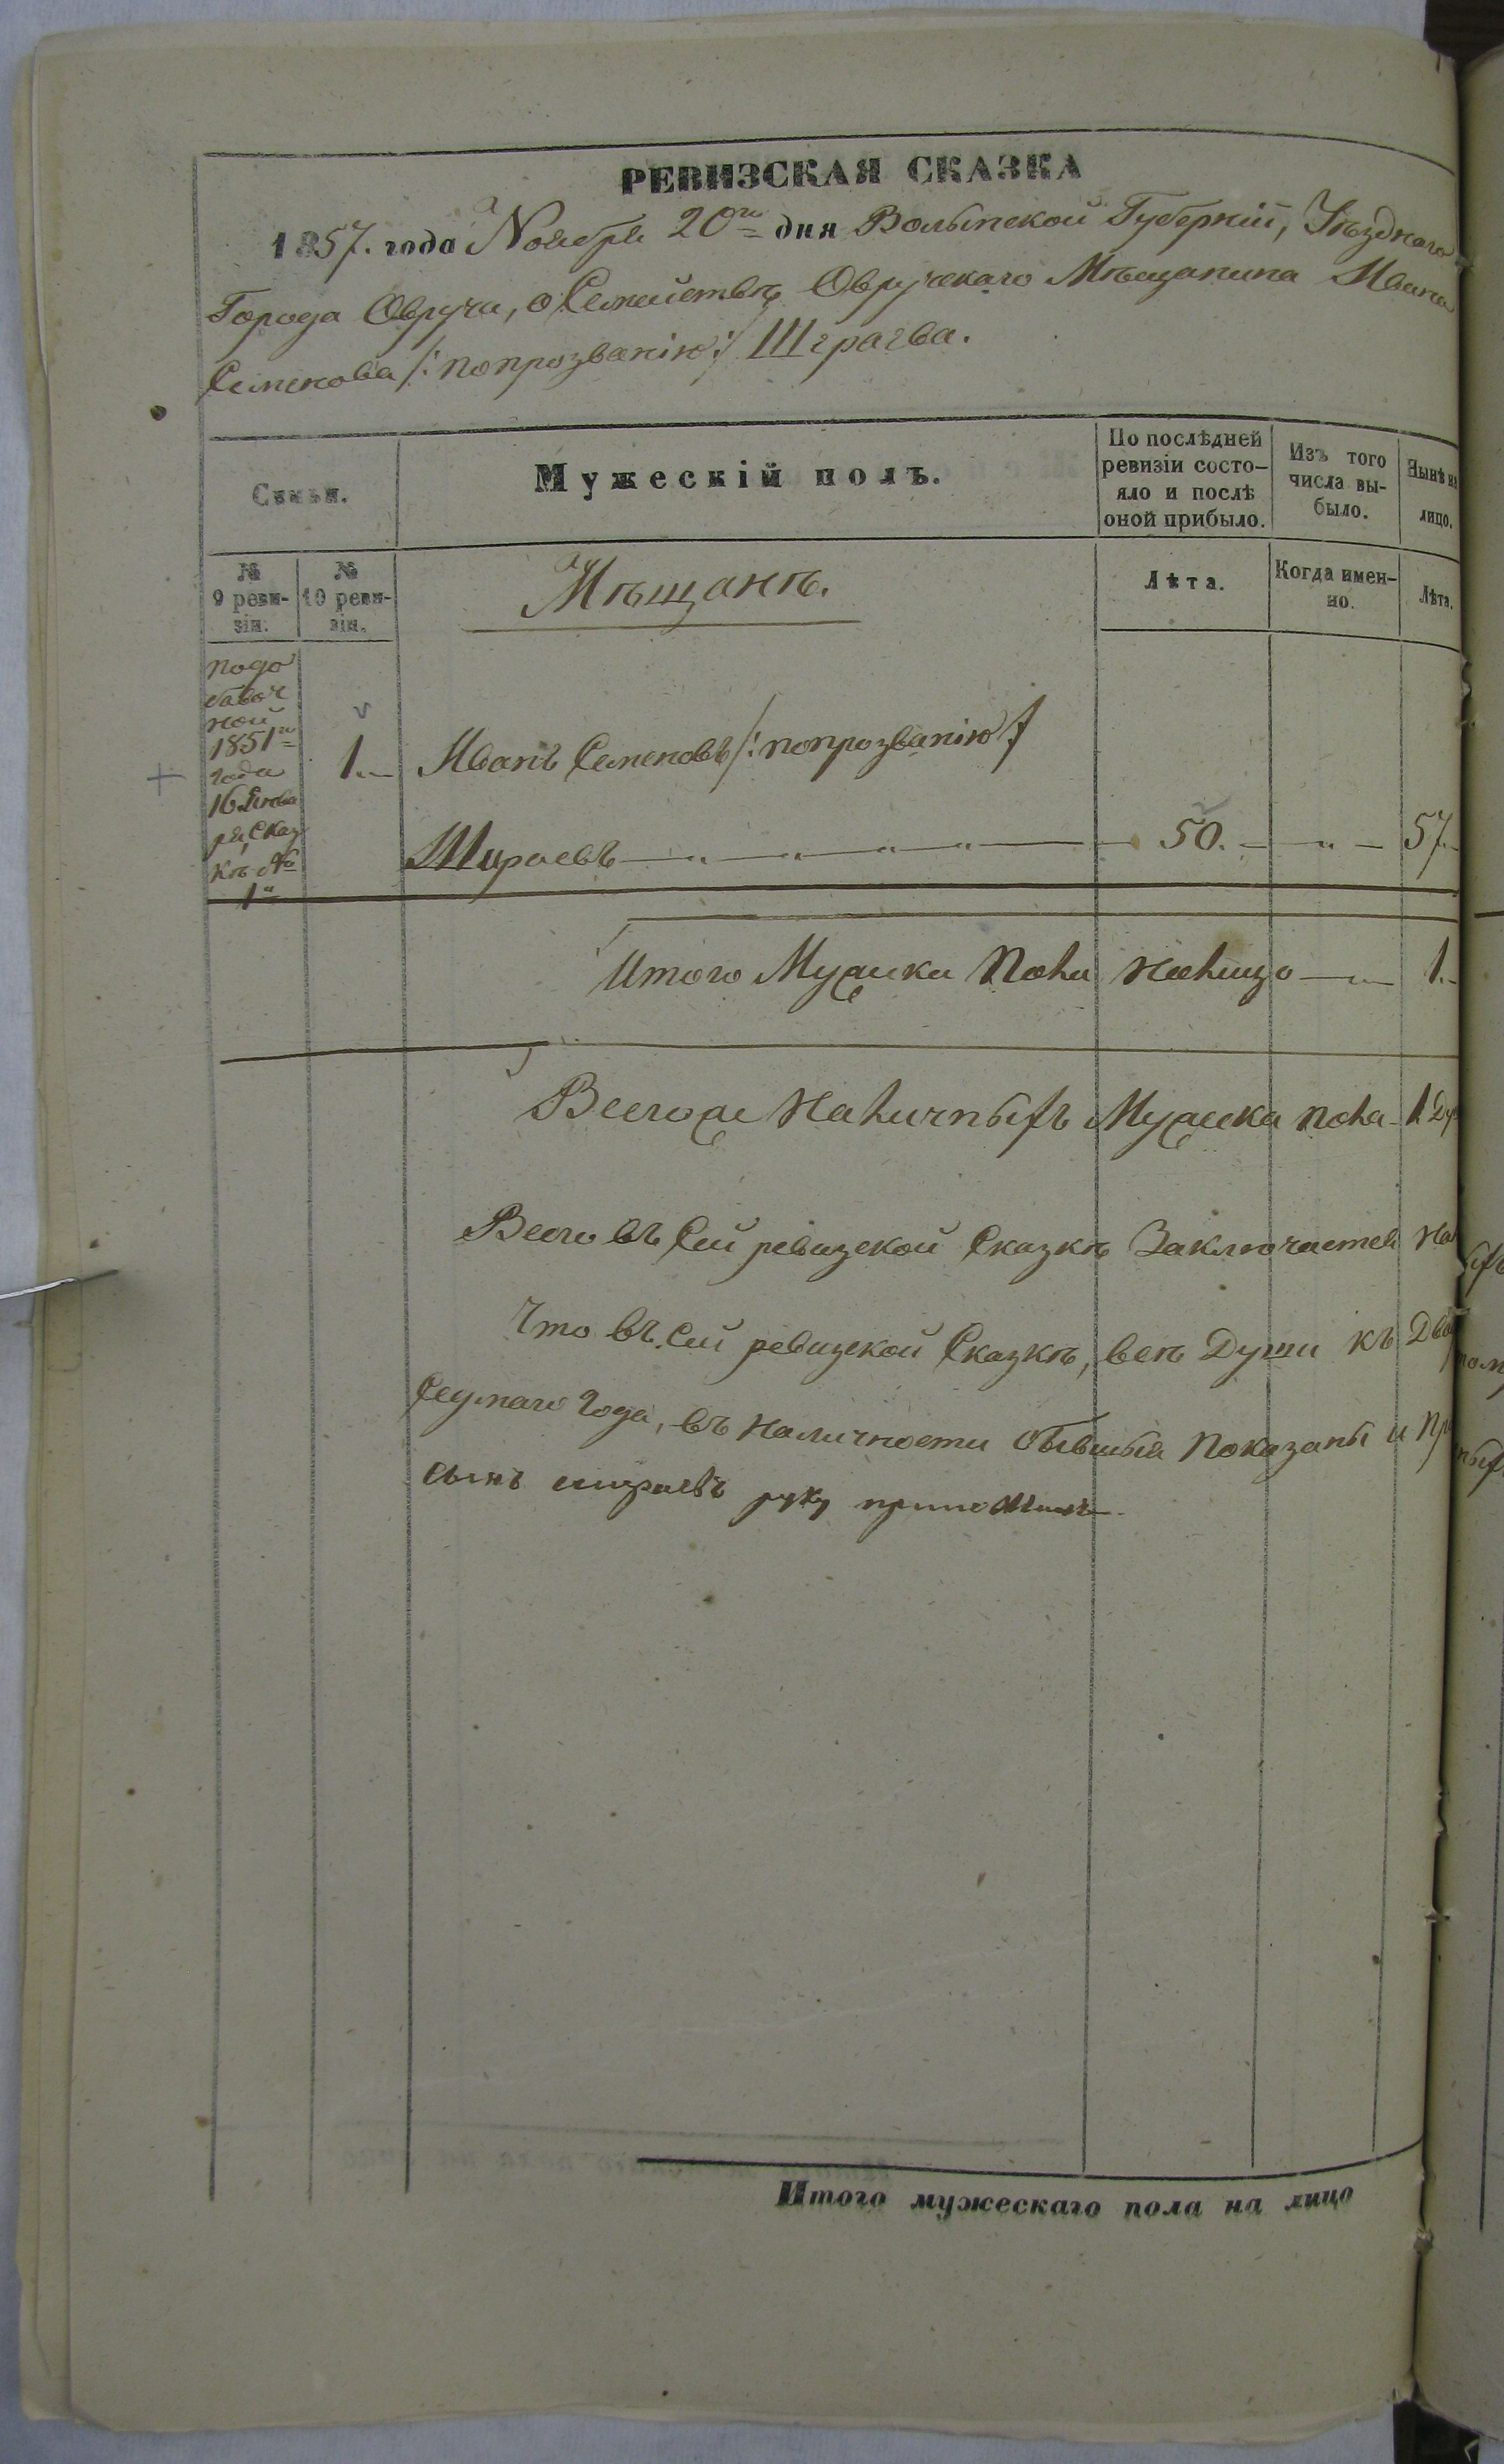 РЕВИЗСКАЯ СКАЗКА
1857. года Ноября 20го дня Волынской Губерніи, Уѣзднаго
Города Овруча, о Семействѣ Овручскаго Мѣщанина Ивана
Семенова /: попрозванію :/
Семьи.
Мужескій полъ.
По послѣдней ревизіи состо-
яло и послѣ оной прибыло.
Изъ того числа вы-
было.
Нынѣ на
лицо.
№ 9 реви-
зіи.
№ 10 реви-
зіи.
Мѣщанѣ.
Лѣта.
Когда имен-
но.
Лѣта.
подо
бавоч
ной
1851го
года
16 Генва
ря, Сказ
кѣ №
1й
1.
Иванъ Семеновъ /: попрозванію :/
50. — „ — 57.
Итого Мужеска Пола Налицо — 1.
Всегоже Наличныхъ Мужеска пола 1 Ду
Всего въ Сей ревизской Сказкѣ Заключается На
Что въ Сей ревизской Сказкѣ, всѣ Души къ Два
Седмаго Года, въ Наличности бывшыя Показаны и Пр
сынъ руку приложилъ
Итого мужескаго пола на лицо